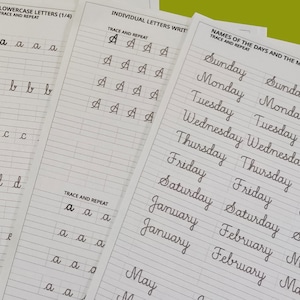 LOWERCASE LETTERS (1/4)
TRACE AND REPEAT
a a a a
b b b
c c
d
INDIVIDUAL LETTERS
TRACE AND REPEAT
A A A A
A A A A
A A A A
A A A A
TRACE AND REPEAT
a a a
a a a
a a
a a
NAMES OF THE DAYS AND THE
TRACE AND REPEAT
Sunday Sunday
Monday Monday
Tuesday Tuesday
Wednesday Wednesday
Thursday Thursday
Friday Friday
Saturday Saturday
January February
January February
May May
May